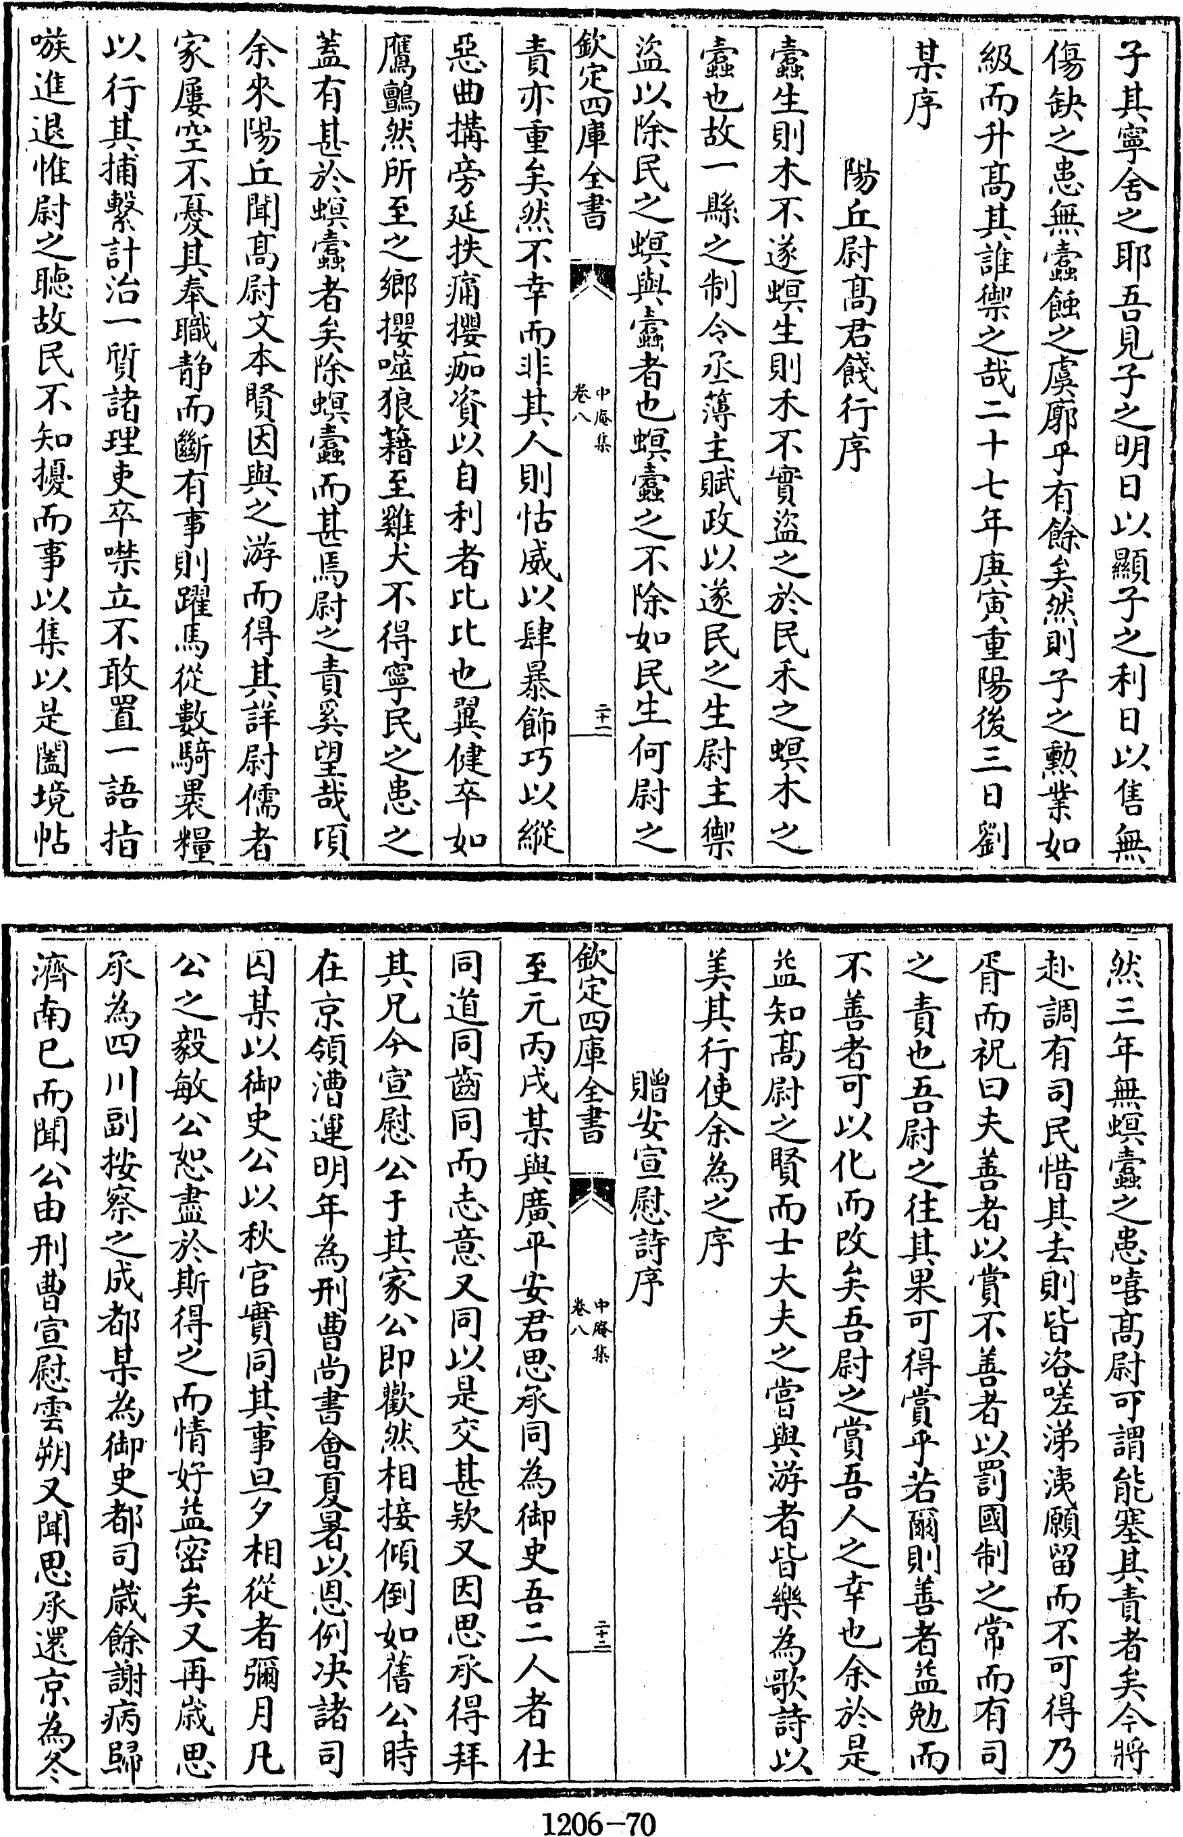 子其寧舍之耶吾見子之明日以顯子之利日以售無
傷缺之患無蠧蝕之虞廓乎有餘矣然則子之勲業如
級而升髙其誰禦之哉二十七年庚寅重陽後三日劉
某序
陽丘尉髙君餞行序
蠧生則木不遂螟生則禾不實盜之於民禾之螟木之
蠧也故一縣之制令丞薄主賦政以遂民之生尉主禦
盜以除民之螟與蠧者也螟蠧之不除如民生何尉之
欽定四庫全書
中庵集
卷八
二十一
責亦重矣然不幸而非其人則怙威以肆暴飾巧以縱
惡曲搆旁延抶痛攖痂資以自利者比比也翼健卒如
鷹鸇然所至之鄉攖噬狼籍至雞犬不得寧民之患之
蓋有甚於螟蠧者矣除螟蠧而甚焉尉之責奚望哉頃
余來陽丘聞髙尉文本賢因與之游而得其詳尉儒者
家屢空不憂其奉職静而斷有事則躍馬從數騎褁糧
以行其捕繫計治一質諸理吏卒噤立不敢置一語指
嗾進退惟尉之聽故民不知擾而事以集以是闔境帖
然三年無螟蠧之患嘻髙尉可謂能塞其責者矣今將
赴調有司民惜其去則皆咨嗟涕洟願留而不可得乃
胥而祝曰夫善者以賞不善者以罰國制之常而有司
之責也吾尉之往其果可得賞乎若爾則善者益勉而
不善者可以化而改矣吾尉之賞吾人之幸也余於是
益知髙尉之賢而士大夫之嘗與游者皆樂為歌詩以
美其行使余為之序
贈安宣慰詩序
欽定四庫全書
中庵集
卷八
二十二
至元丙戌某與廣平安君思承同為御史吾二人者仕
同道同齒同而志意又同以是交甚欵又因思承得拜
其兄今宣慰公于其家公即歡然相接傾倒如舊公時
在京領漕運明年為刑曹尚書會夏暑以恩例决諸司
囚某以御史公以秋官實同其事旦夕相從者彌月凡
公之毅敏公恕盡於斯得之而情好益密矣又再歲思
承為四川副按察之成都某為御史都司歲餘謝病歸
濟南已而聞公由刑曹宣慰雲朔又聞思承還京為冬
1206-70